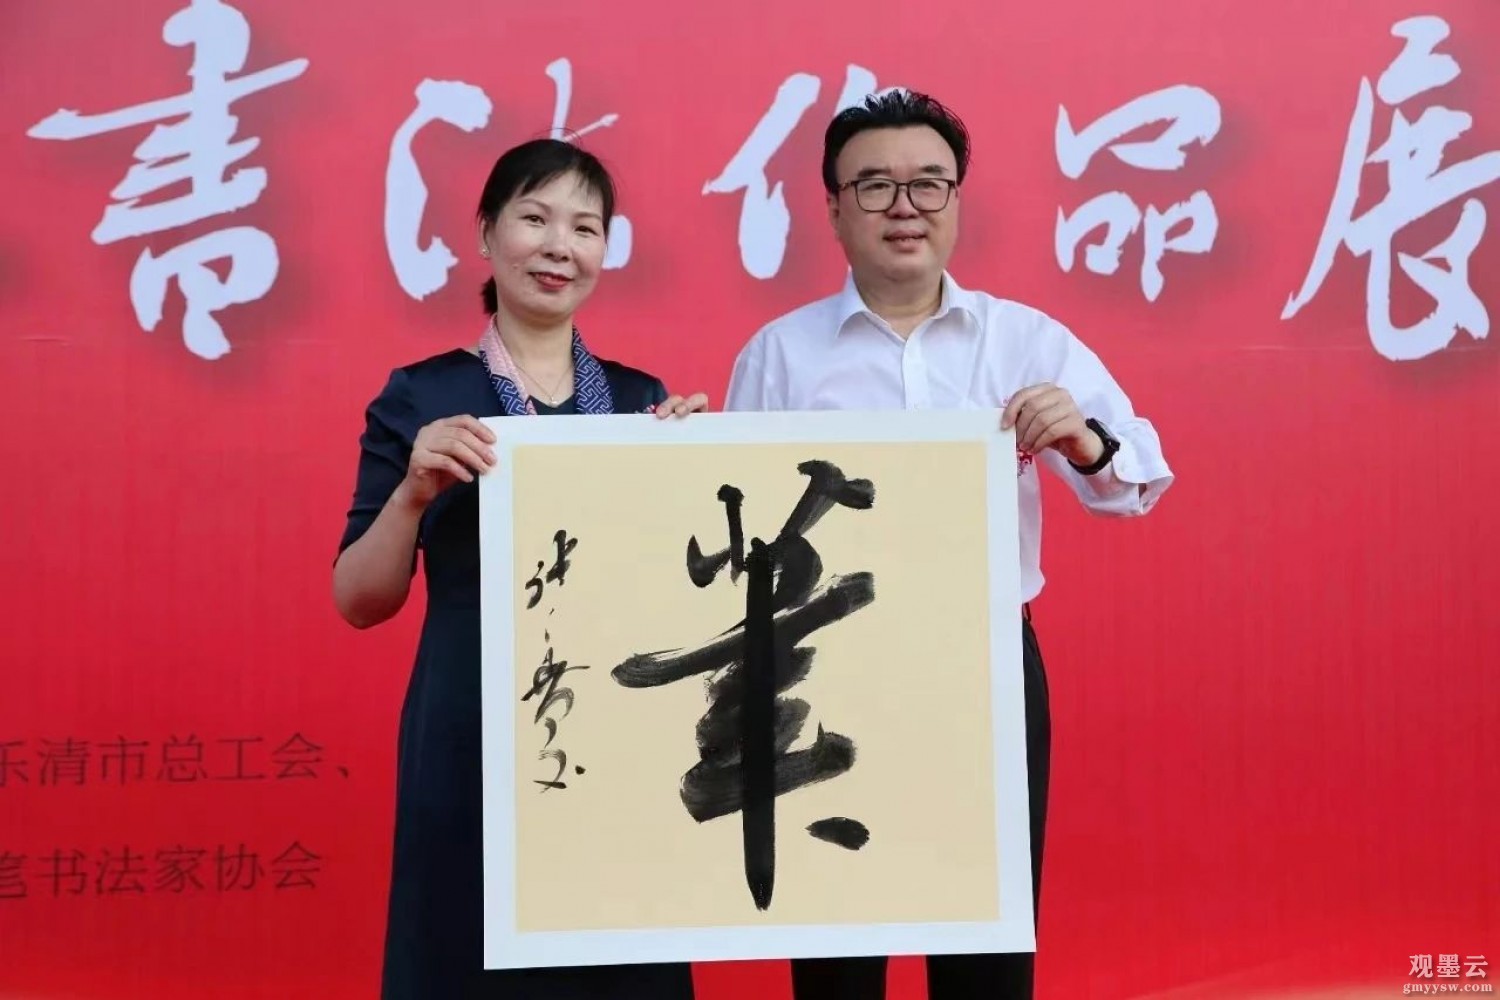 書法作品展
乐清市总工会、
笔书法家协会
業
观墨云
gmyysw.com